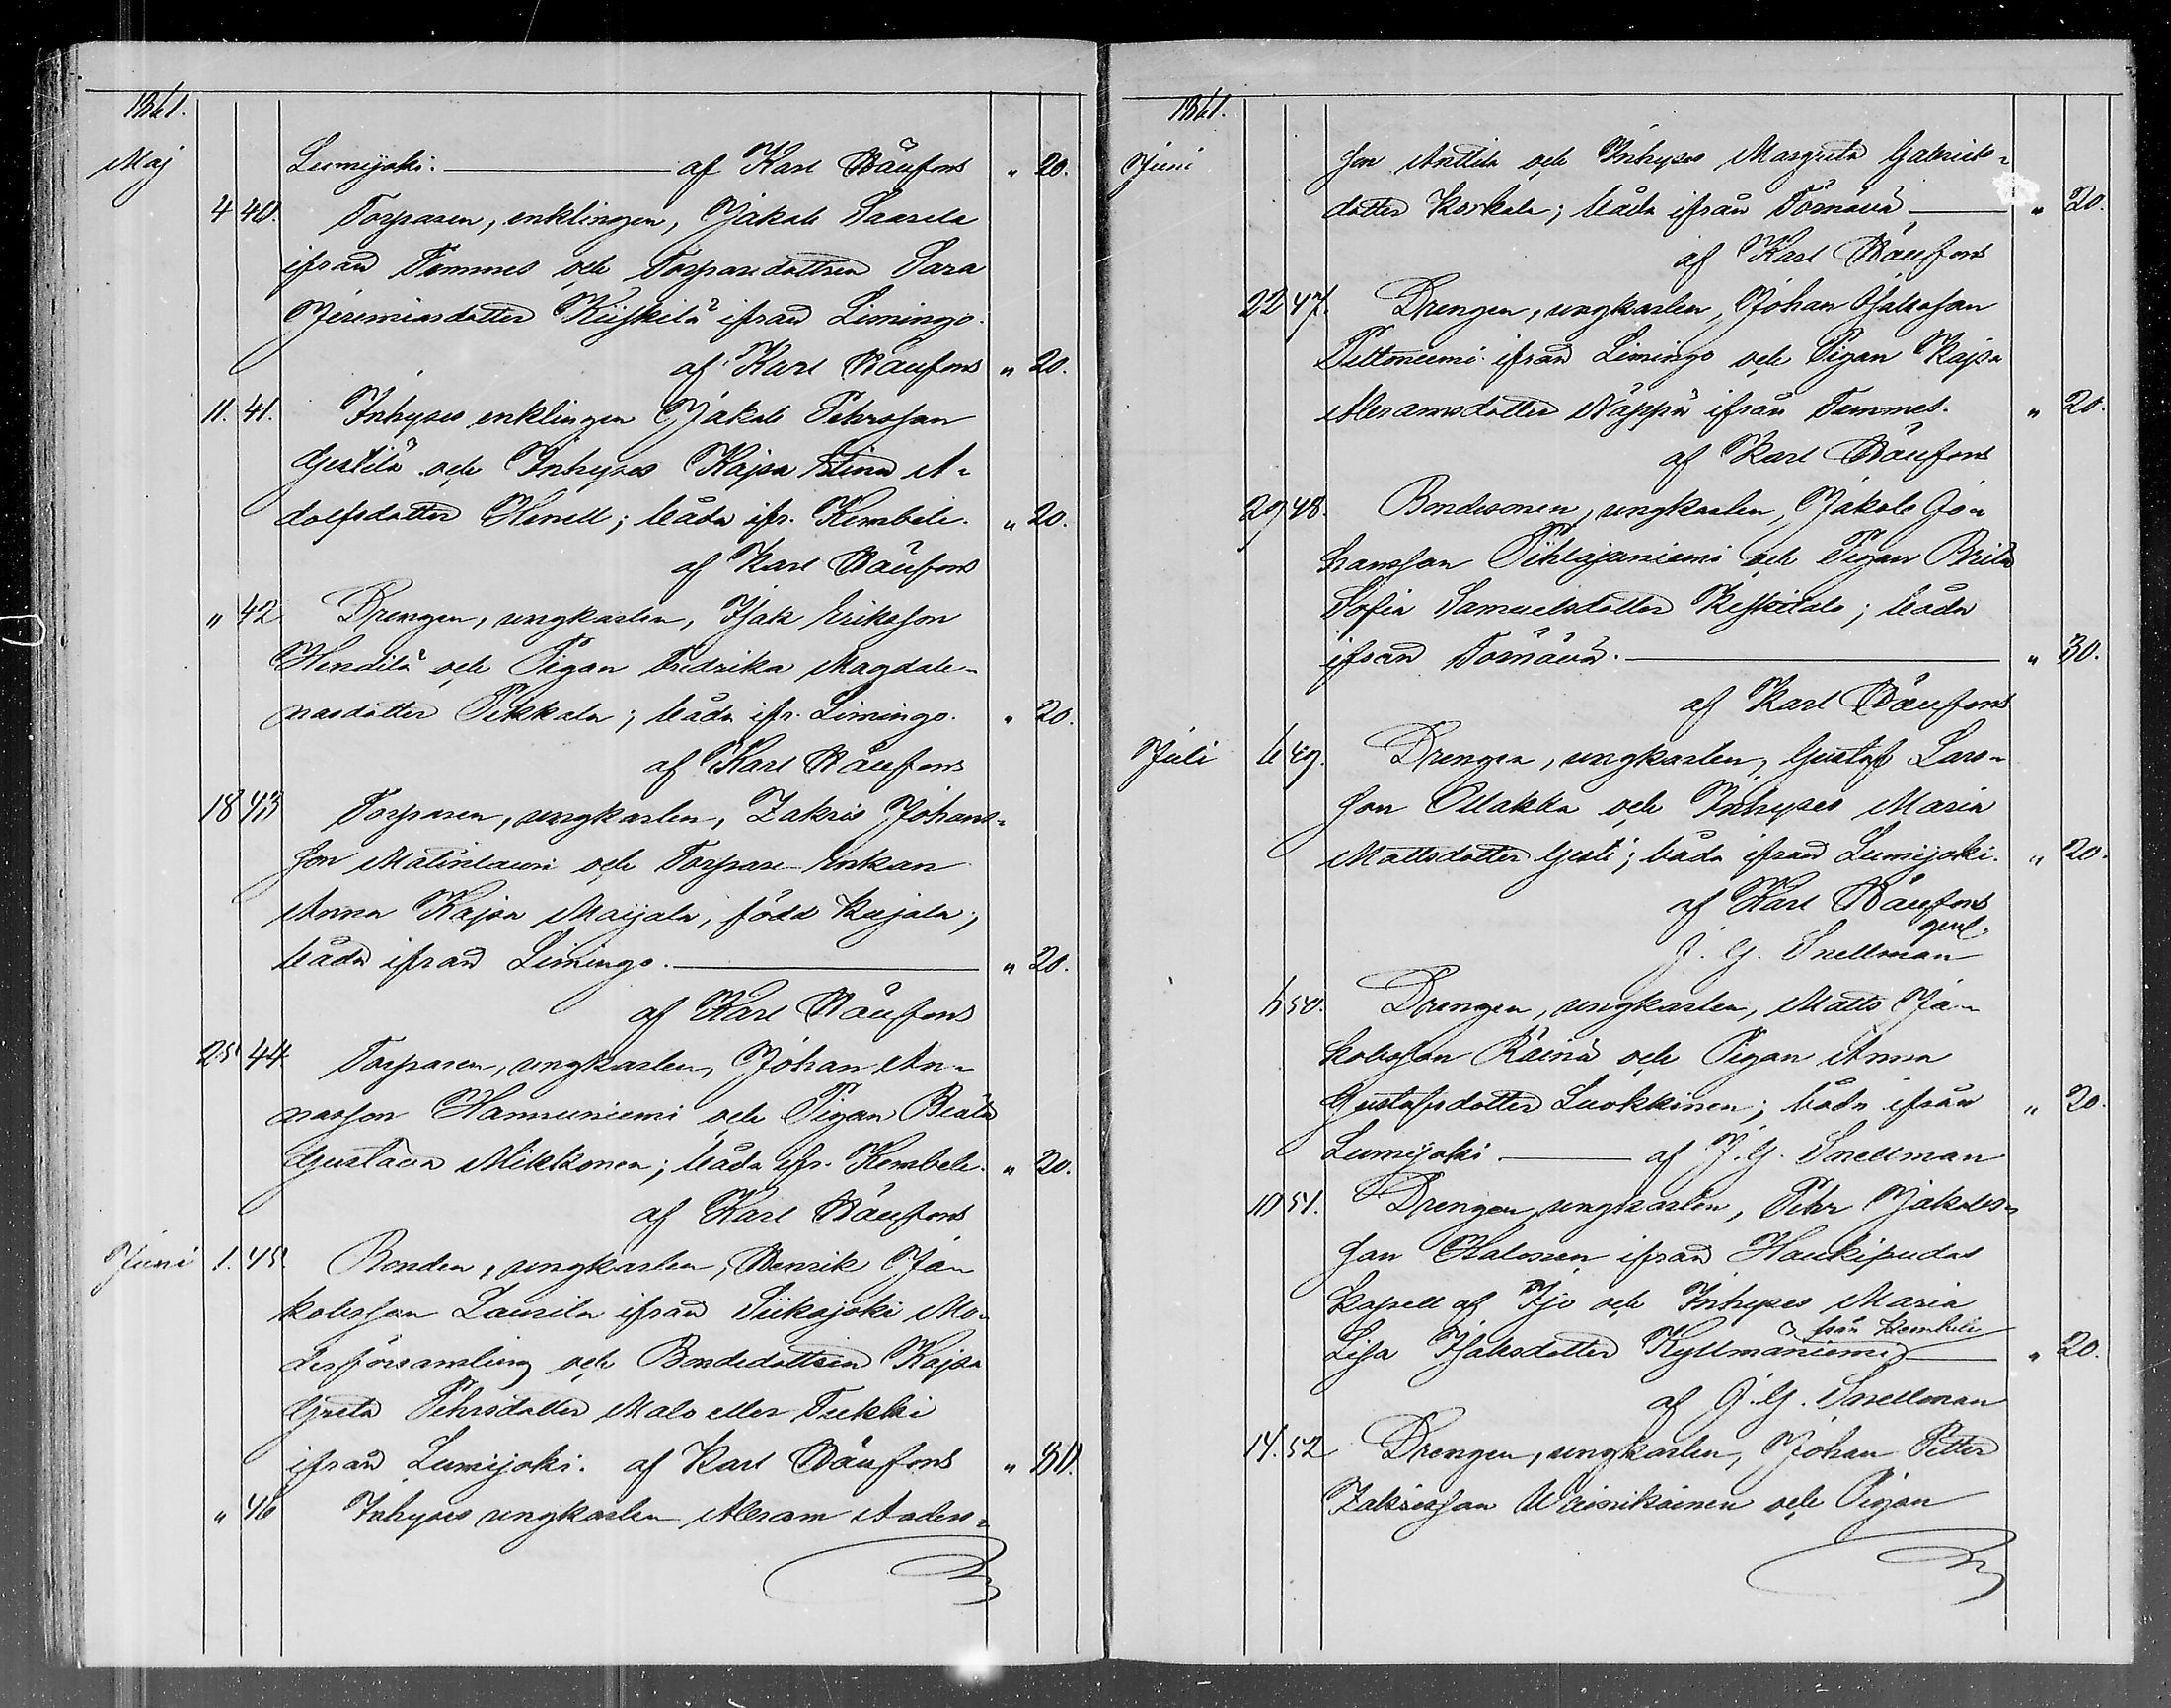 1861.
Maj Lumijoki. af Karl Bäufons " 20.
4 40. Torparen, enklingen, Jakob Saarela
ifrån Temmes och Torparedottren Sara
Jeremiasdotter Kiiskilä ifrån Limingo.
af Karl Bäufons " 20.
11. 41. Inhyses enklingen Jakob Pehrsson
Gestilä och Inhyses Kajsa Stina A-
dolfsdotter Henell; båda ifr. Kembele. " 20.
af Karl Bäufons
" 42 Drengen, ungkarlen, Isak Eriksson
Hendilä och Pigan Fredrika Magdale-
nasdotter Pekkala; båda ifr. Limingo. " 20.
af Karl Bäufons
18 43 Torparen, ungkarlen, Zakris Johans-
son Matinlauri och Torpare Enkan
Anna Kajsa Maijala, född Kujala;
båda ifrån Limingo. " 20.
af Karl Bäufons
25 44 Torparen, ungkarlen, Johan An-
nasson Hannuniemi och Pigan Beata
Gustava Mikkonen; båda ifr. Kembele. " 20.
af Karl Bäufons
Juni 1. 45. Bonden, ungkarlen, Henrik Ja-
kobsson Laurila ifrån Siikajoki Mo-
derförsamling och Bondedottren Kajsa
Greta Pehrsdotter Malo eller
ifrån Lumijoki. af Karl Bäufons " 30.
" 46 Inhyses ungkarlen Abram Anders-
1861.
Juni son Anttila och Inhyses Margreta Gabriels-
dotter Korkala; båda ifrån Törnävä " 20.
af Karl Bäufons
22 47. Drengen, ungkarlen, Johan Isaksson
Piltoniemi ifrån Limingo och Pigan Kajsa
Abramsdotter Näppä ifrån Temmes. " 20.
af Karl Bäufons
29 48. Bondesonen, ungkarlen, Jakob Jo-
hansson Pihlajaniemi och Pigan Brita
Sofia Samuelsdotter Keskitalo; båda
ifrån Törnävä. " 30.
af Karl Bäufons
Juli 6 49. Drengen, ungkarlen, Gustaf Lars-
son Ollakka och Inhyses Maria
Mattsdotter Gesti; båda ifrån Lumijoki. " 20.
af Karl Bäufons
gml.
J. G. Snellman
6 50. Drengen, ungkarlen, Matts Ja-
kobsson Räinä och Pigan Anna
Gustafsdotter Luokkinen; båda ifrån " 20.
Lumijoki. af J. G. Snellman
10 51. Drengen, ungkarlen, Pehr Jakobs-
son Halonen ifrån Haukipudas
Kapell af Ijo och Inhyses Maria
från Kembele
Lisa Isaksdotter Kyllmäniemi " 20.
af J. G. Snellman
14. 52 Drengen, ungkarlen, Johan Petter
Zakrisson Wäinikäinen och Pigan